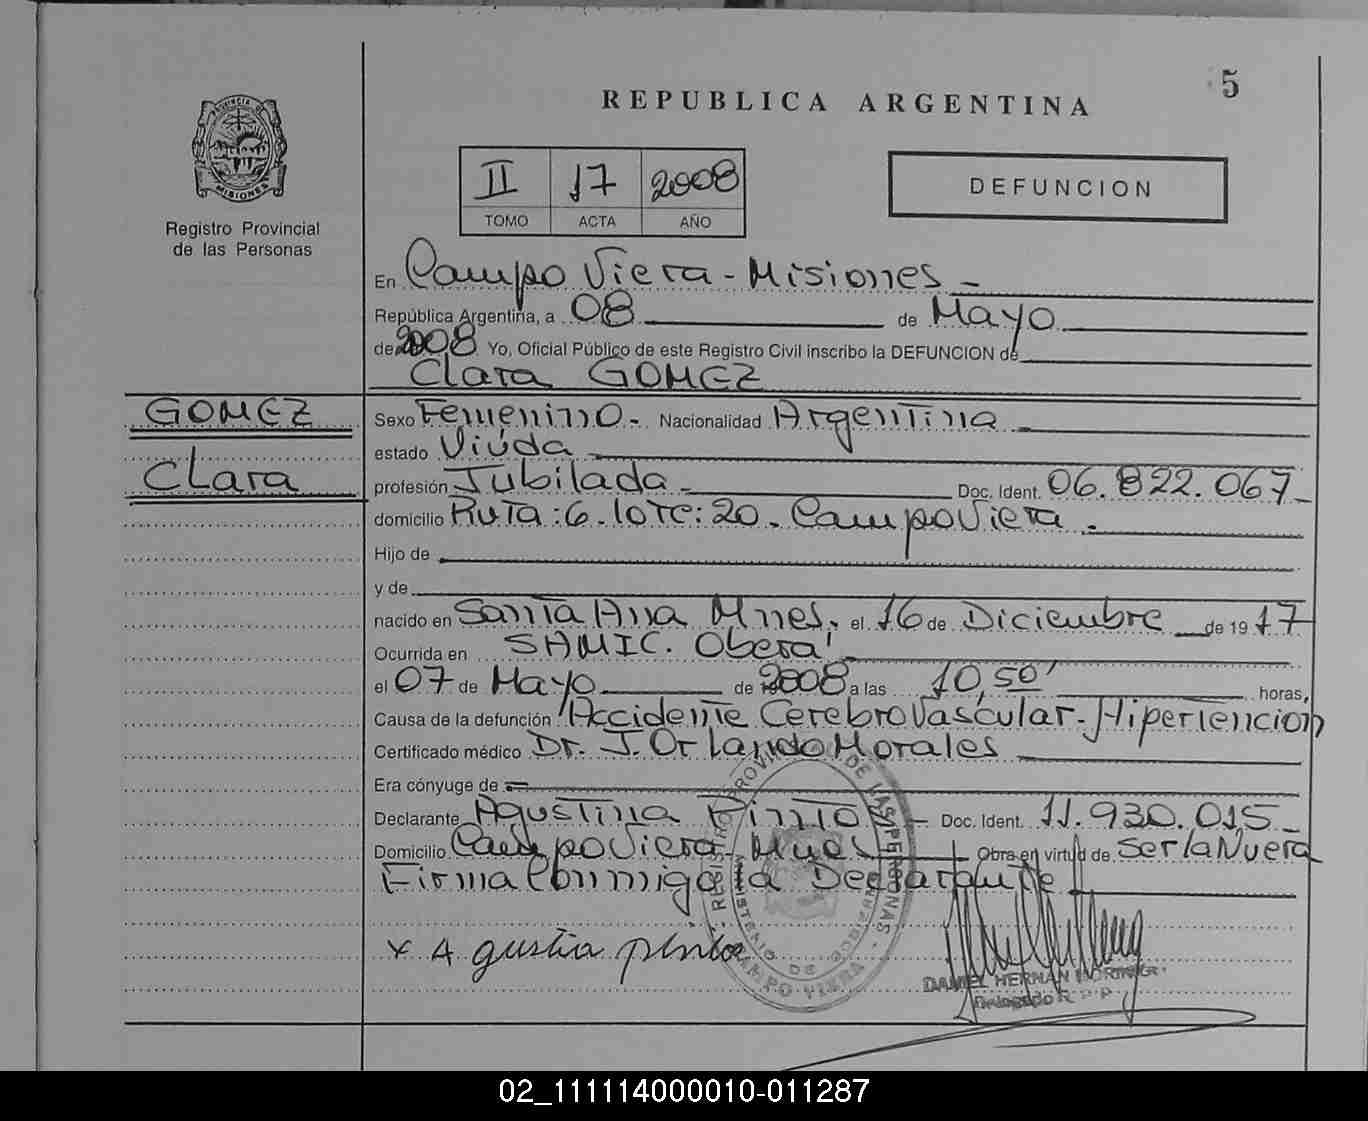 5
REPUBLICA ARGENTINA
PROVINCIA DE
MISIONES
Registro Provincial
de las Personas
II 17 2008
TOMO ACTA AÑO
DEFUNCION
En Campo Viera - Misiones -
República Argentina, a 08 de Mayo
de 2008 Yo, Oficial Público de este Registro Civil inscribo la DEFUNCION de
Clara GOMEZ
GOMEZ
Clara
Sexo Femenino - Nacionalidad Argentina
estado Viúda
profesión Jubilada - Doc. Ident. 06.822.067-
domicilio Ruta:6. lote:20. Campo Viera.
Hijo de
y de
nacido en Santa Ana Mnes. el 16 de Diciembre de 19 17
Ocurrida en SAMIC. Oberá
el 07 de Mayo de 2008 a las 10,50' horas,
Causa de la defunción Accidente Cerebro Vascular - Hipertencion
Certificado médico Dr. J. Orlando Morales
Era cónyuge de
Declarante Agustina Pinto - Doc. Ident. 11.930.015-
Domicilio Campo Viera Mnes Obra en virtud de ser la Nuera
Firma Conmigo la Declarante
x Agustia pinto
REGISTRO PROVINCIAL DE LAS PERSONAS
MINISTERIO DE GOBIERNO
CAMPO VIERA
DANIEL HERNAN
Delegado R.P.P.
02_111114000010-011287